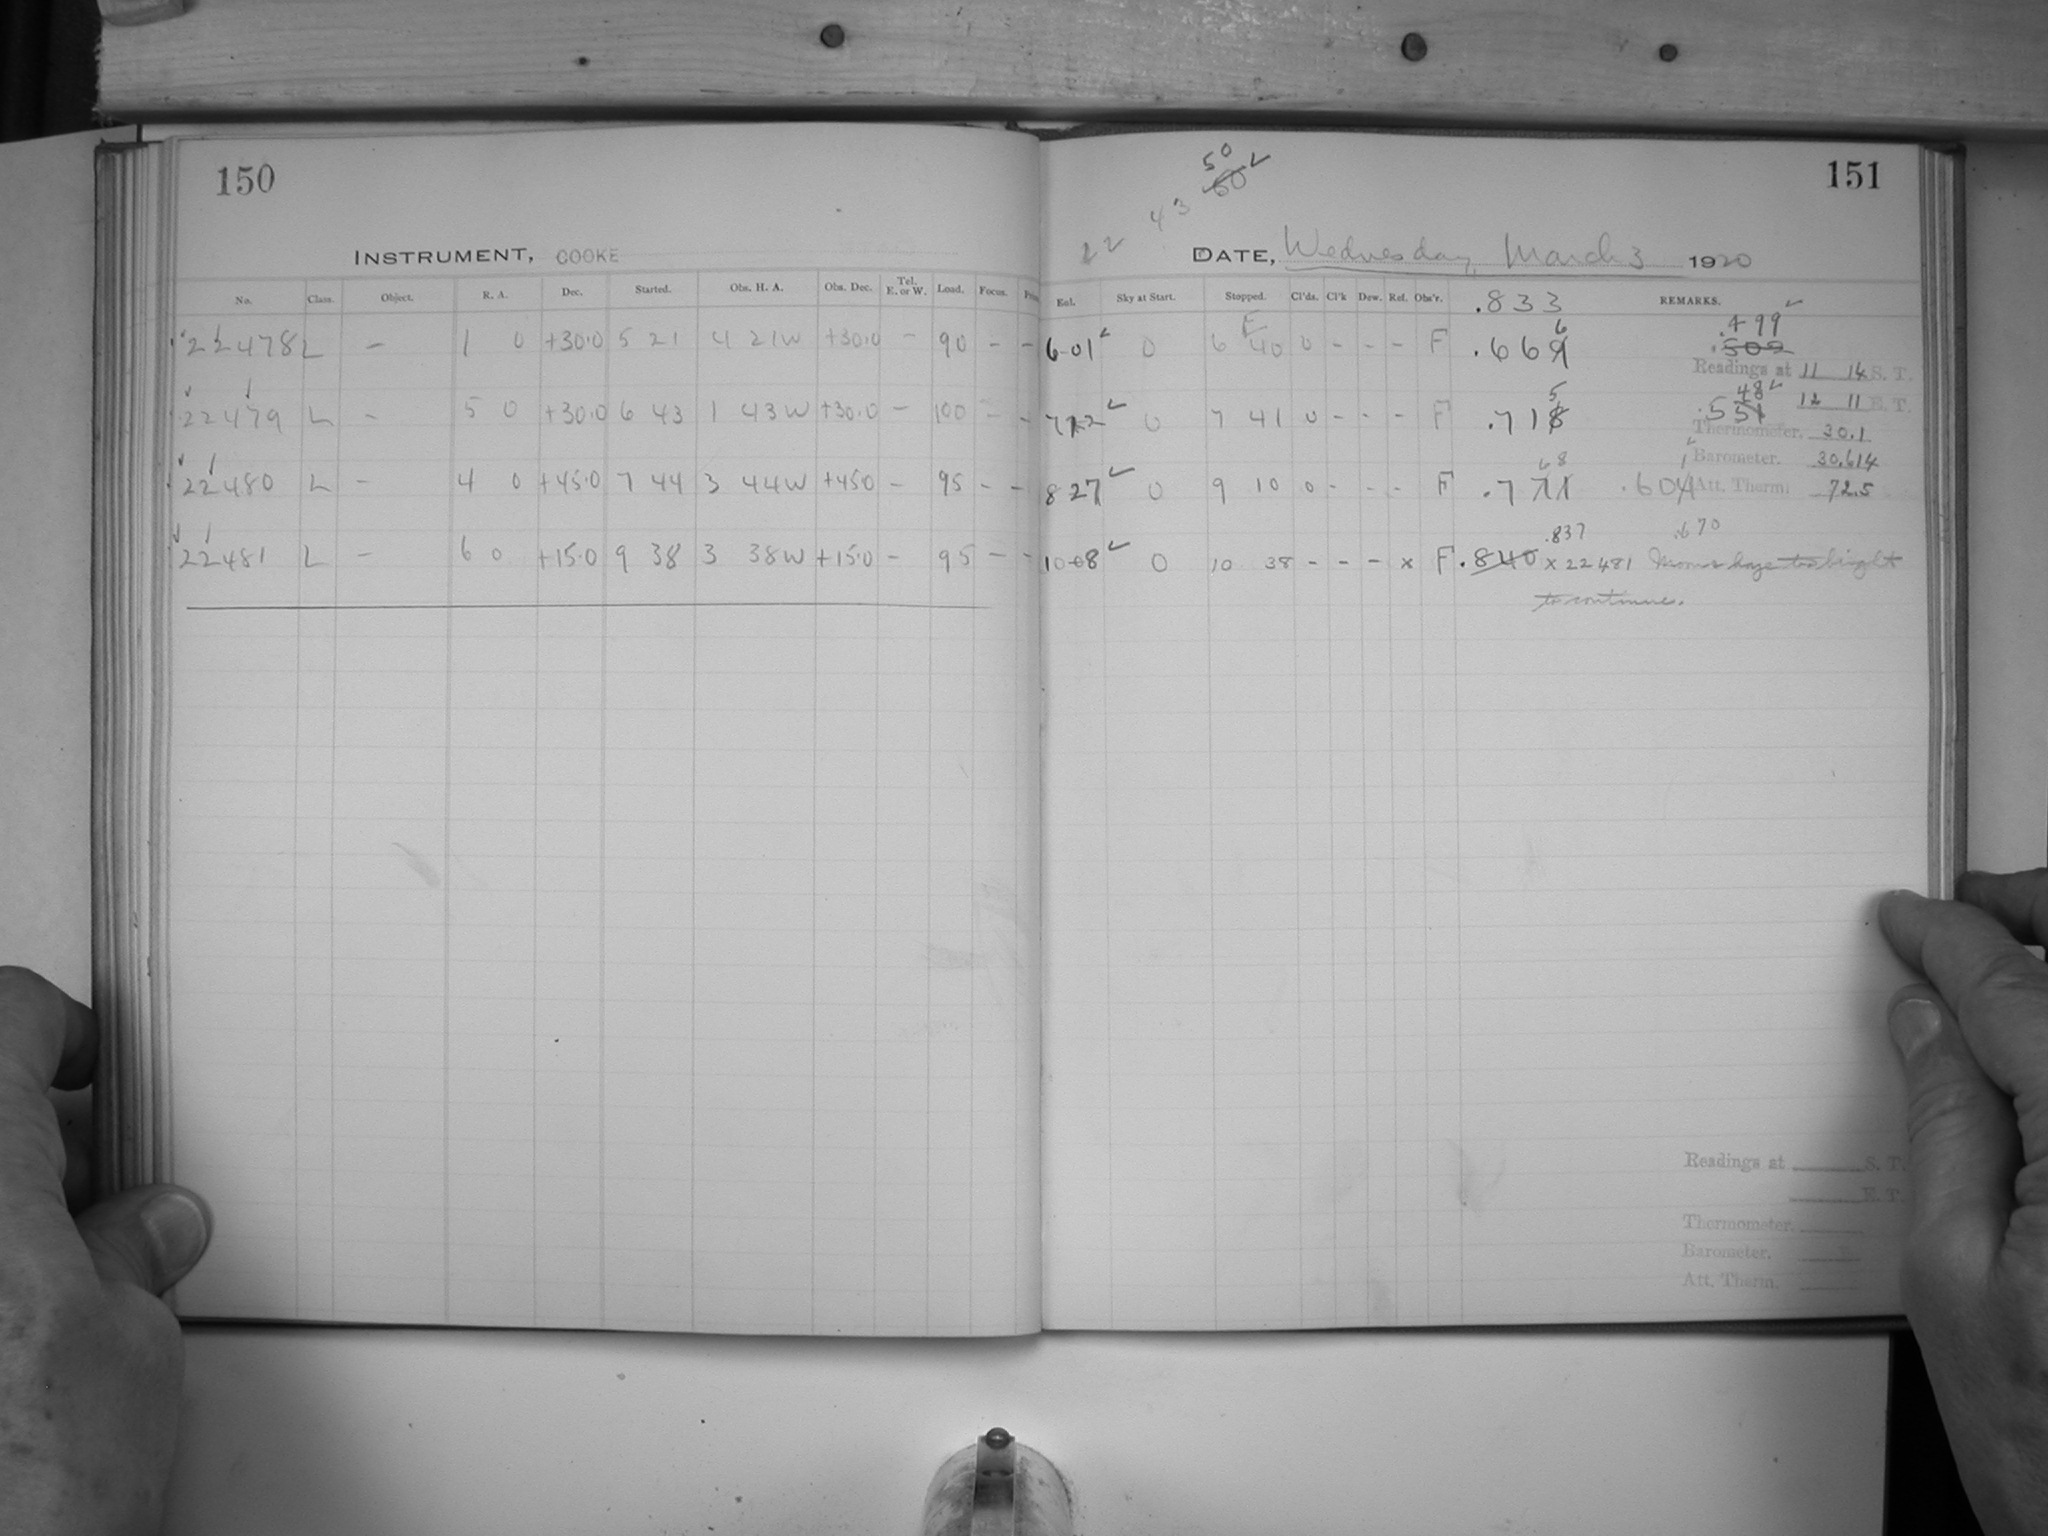 150
INSTRUMENT, COOKE
No. Class. Object. R. A. Dec. Started. Obs. H. A. Obs. Dec. Tel. E. or W. Load. Focus.
22478 L - 1 0 +30.0 5 21 4 21W +30.0 - 90 - -
22479 L - 5 0 +30.0 6 43 1 43W +30.0 - 100 - -
22480 L - 4 0 +45.0 7 44 3 44W +45.0 - 95 - -
22481 L - 6 0 +15.0 9 38 3 38W +15.0 - 95 - -
50
60
22 43
151
DATE, Wednesday, March 3 1920
Sky at Start. Stopped. Cl'ds. Cl'k Dew. Ref. Obs'r. .833 REMARKS.
E .499
6-01 0 6 40 0 - - - F .669 6 .502
Readings at 11 14 S. T.
48
0 7 41 0 - - - F .718 5 .551 12 11 E. T.
Thermometer. 30.1
68 Barometer. 30.614
8 27 0 9 10 0 - - - F .771 .604 Att. Therm. 72.5
.837 .670
10-08 0 10 38 - - - x F .840 x 22481 Moon & haze too bright
to continue.
Readings at S. T.
E. T.
Thermometer.
Barometer.
Att. Therm.